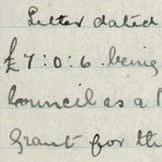 Letter dated
£7:0:6. being
Council as a
Grant for the